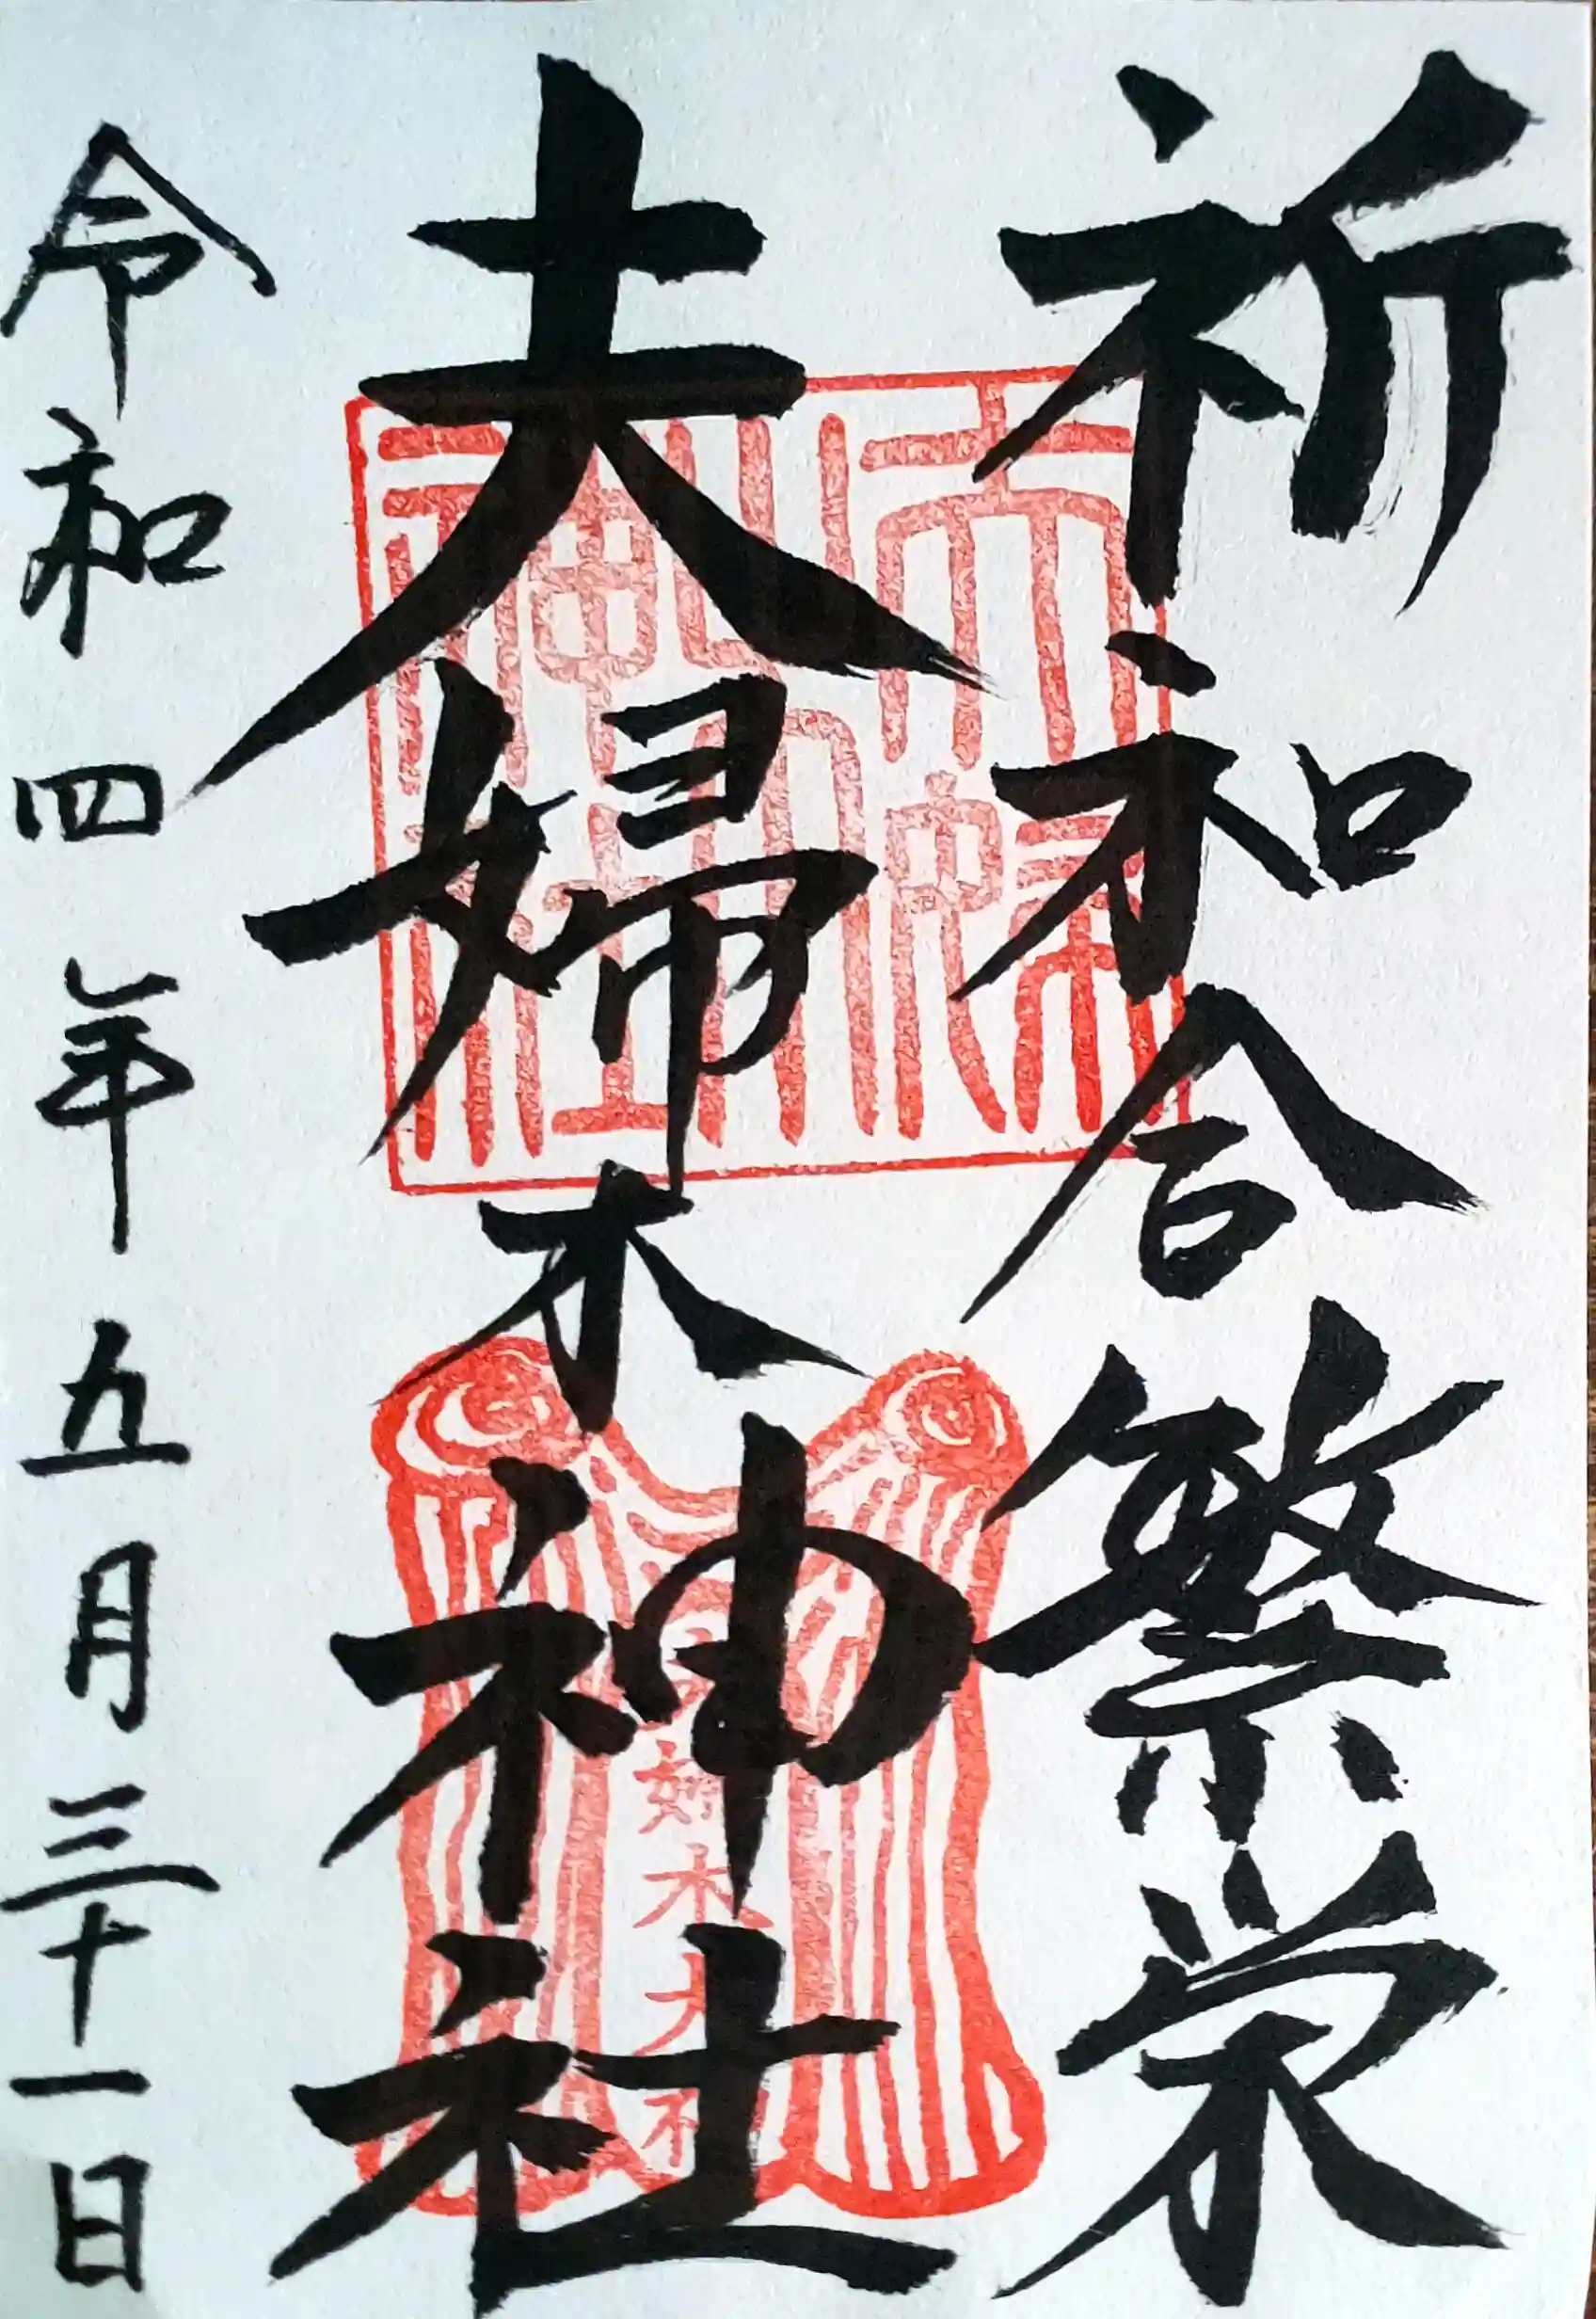 祈和合繁栄
夫婦木神社
令和四年五月三十一日